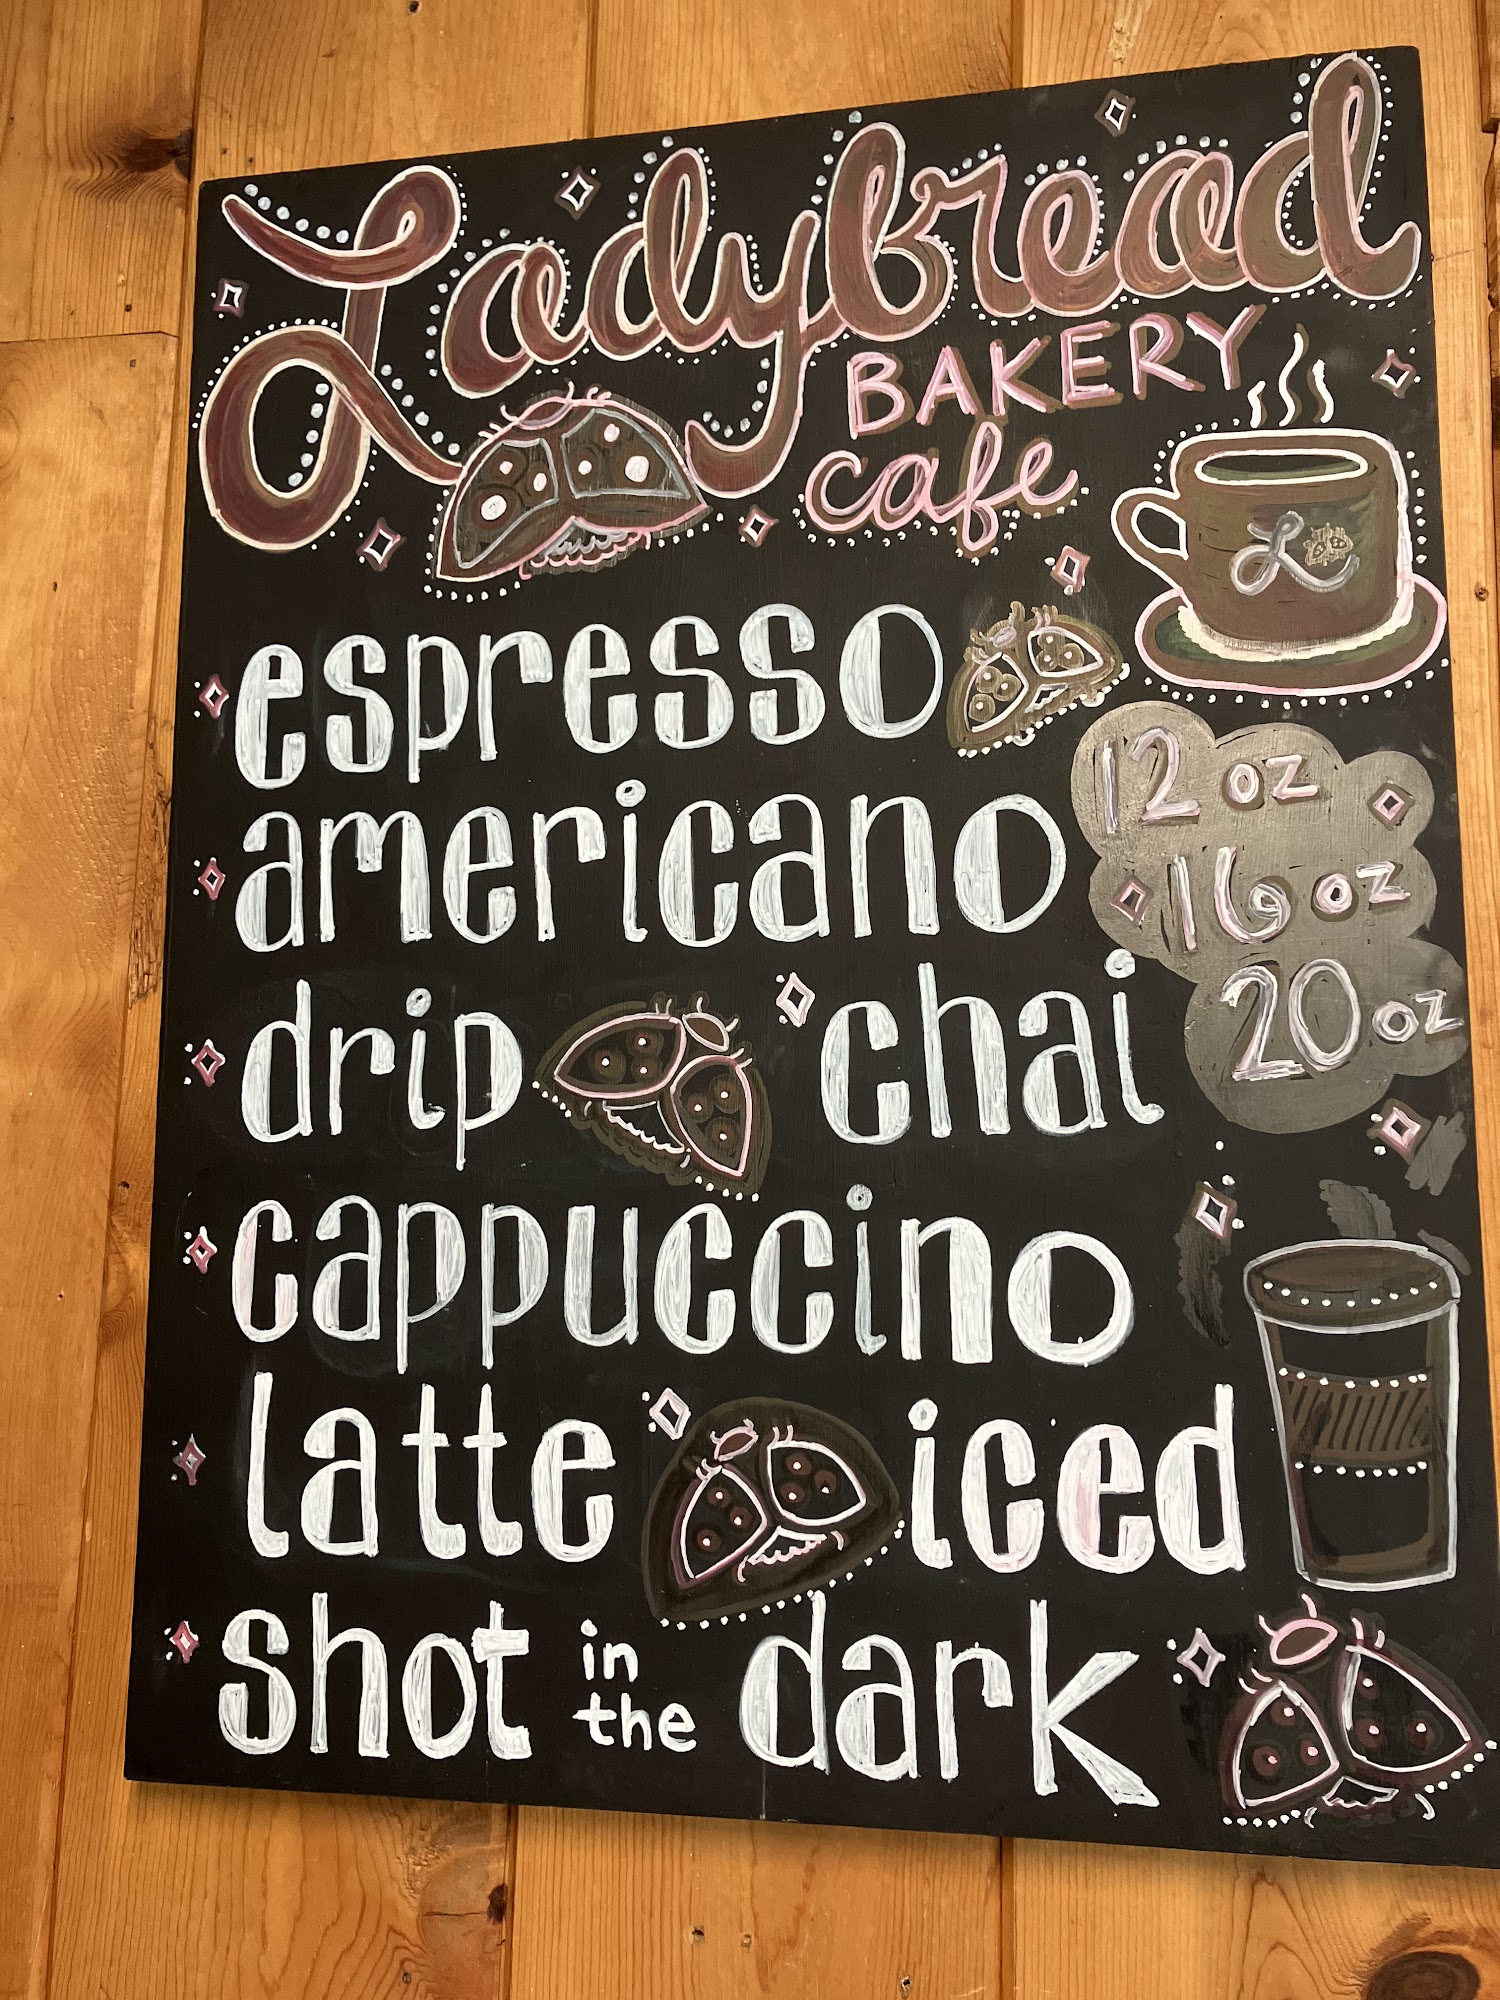 Ladybread
BAKERY
cafe
L
espresso
12 oz
americano
16 oz
drip chai
20 oz
cappuccino
latte iced
shot in the dark